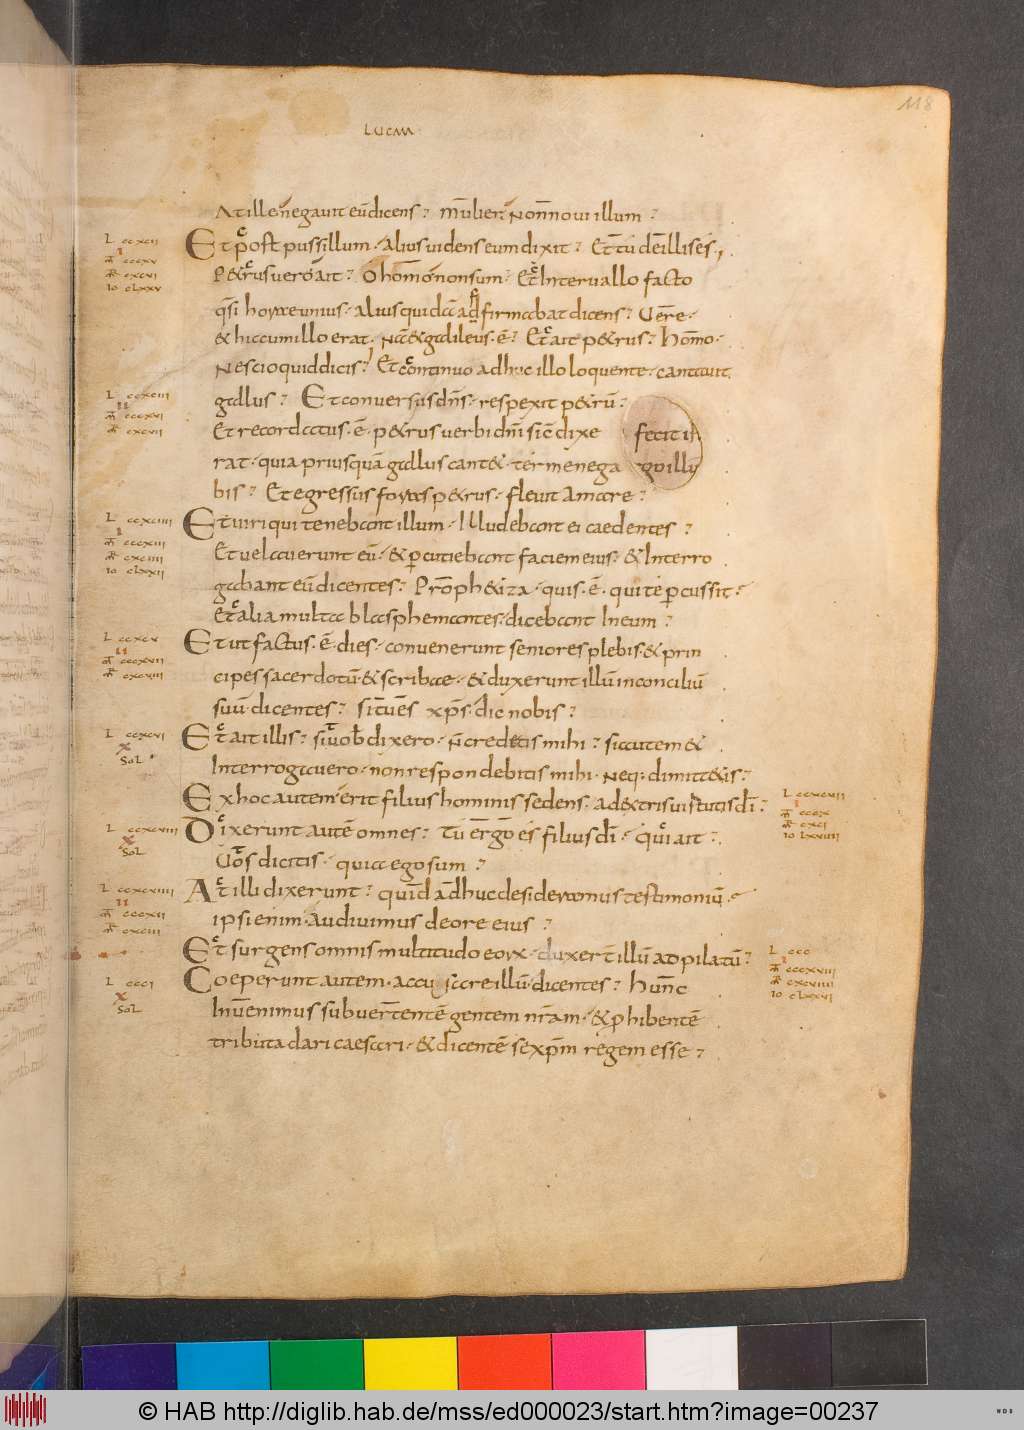 118
LUCAM
At ille negavit eū dicens? Mulier non novi illum?
Et post pussillum. Alius videns eum dixit? Et tu de illis es;
Petrus vero ait? O homo non sum? Et Intervallo facto
q̄si horae unius. Alius quidā adfirmabat dicens? Vere.
& hic cum illo erat. Nā & galileus. ē? Et ait petrus? Homo.
Nescio quid dicis? Et continuo adhuc illo loquente. cantavit
gallus? Et conversus dn̄s. respexit petrū?
Et recordatus. ē. petrus verbi dn̄i sic dixe
fecit in
rat. quia priusquā gallus cant&. ter me nega
rgo illū
bis? Et egressus foras petrus. flevit Amare?
Et viri qui tenebant illum. Illudebant ei caedentes?
Et velaverunt eū. & percutiebant faciem eius? & Interro
gabant eū dicentes? Prophetiza. quis. ē. qui te percussit.
Et alia multa blasphemantes. dicebant In eum?
Et ut factus. ē. dies. convenerunt seniores plebis. & prin
cipes sacerdotū. & scribae. & duxerunt illū in conciliū
suū. dicentes? si tu es xp̄s. dic nobis?
Et ait illis? si vob̄ dixero. n̄ creditis mihi? si autem &
Interrogavero. non respondebitis mihi. Neq: dimittetis?
Ex hoc autem erit filius hominis sedens. A dextris virtutis dī?
Dixerunt autē omnes? Tu ergo es filius dī. Qui ait?
Vos dicitis. quia ego sum?
At illi dixerunt? quid adhuc desideramus testimoniū.
ipsi enim. Audivimus de ore eius?
Et surgens omnis multitudo eorum. duxert̄ illū ad pilatū?
Coeperunt autem. accusare illū. dicentes? Hunc
Invenimus subvertentē gentem nr̄am. & prohibentē
tributa dari caesari. & dicentē se xp̄m regem esse?
L ccxcii
L ccxciii
L ccxciiii
L ccxcv
L ccxcvi
SoL
L ccxcvii
L ccxcviii
SoL
L ccxcviiii
L ccc
L ccci
SoL
© HAB http://diglib.hab.de/mss/ed000023/start.htm?image=00237